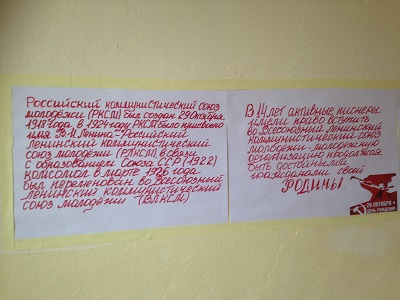 Российский коммунистический союз
молодёжи (РКСМ) был создан 29 октября
1918 года. в 1924 году РКСМ было присвоено
имя В.И. Ленина-Российский
Ленинский коммунистический
союз молодёжи (РЛКСМ). в связи
с образованием Союза ССР (1922)
комсомол в марте 1926 года
был переименован во Всесоюзный
Ленинский коммунистический
союз молодёжи (ВЛКСМ)
В 14 лет активные пионеры
имели право вступить
во Всесоюзный Ленинский
коммунистический союз
молодёжи - молодёжную
организацию продолжая
быть достойными
гражданами своей
РОДИНЫ
29 ОКТЯБРЯ
ДЕНЬ РОЖДЕНИЯ